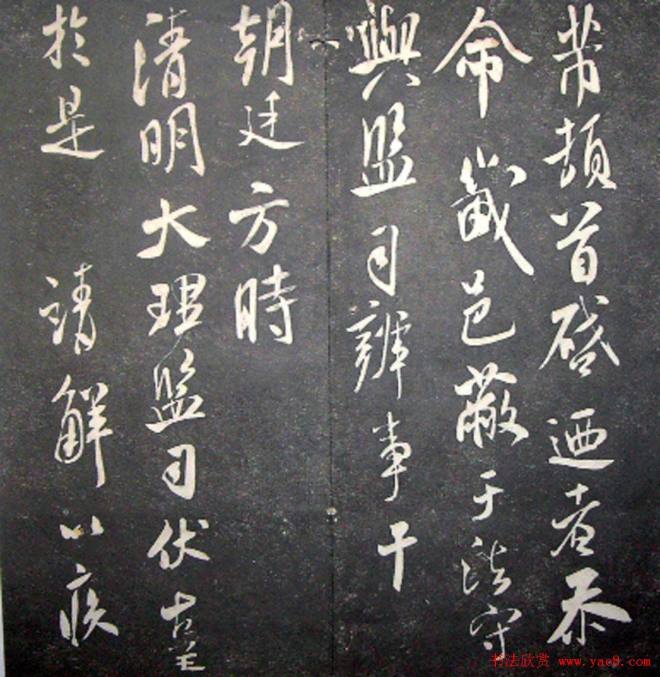 芾頓首啓迺者忝
命畿邑蔽于法守
與監司辨事干
朝廷方時
清明大理監司伏
於是 請解以疾
书法欣赏 www.yac8.com